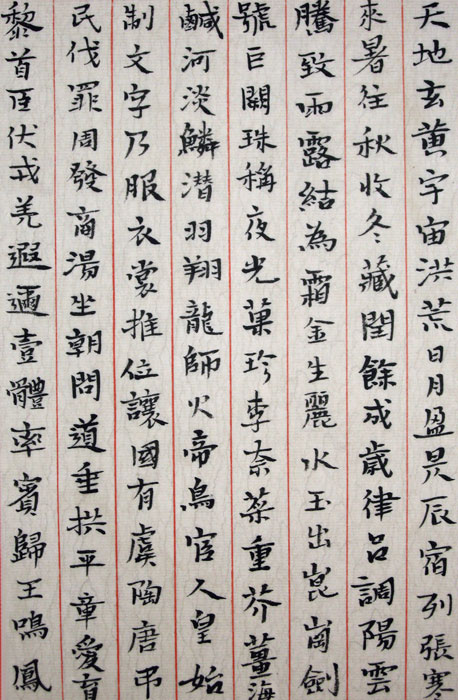 天地玄黄宇宙洪荒日月盈昃辰宿列張寒
來暑往秋收冬藏閏餘成歲律吕調陽雲
騰致雨露結為霜金生麗水玉出崑崗劍
號巨闕珠稱夜光菓珍李柰菜重芥薑海
鹹河淡鱗潛羽翔龍師火帝鳥官人皇始
制文字乃服衣裳推位讓國有虞陶唐弔
民伐罪周發商湯坐朝問道垂拱平章愛育
黎首臣伏戎羌遐邇壹體率賓歸王鳴鳳